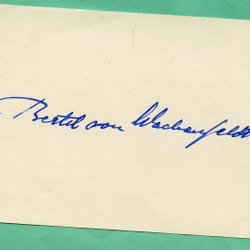 Bertil von Wachenfeldt